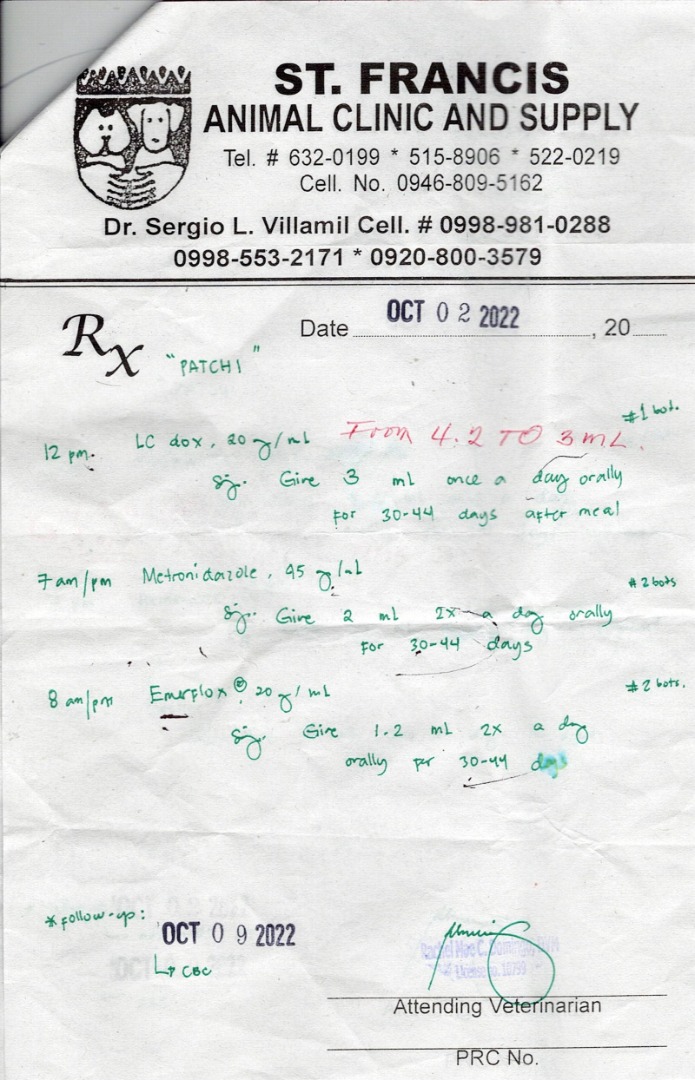 ST. FRANCIS
ANIMAL CLINIC AND SUPPLY
Tel. # 632-0199 * 515-8906 * 522-0219
Cell. No. 0946-809-5162
Dr. Sergio L. Villamil Cell. # 0998-981-0288
0998-553-2171 * 0920-800-3579
Rx
Date OCT 02 2022, 20
"PATCHI"
#1 bot.
12 pm. LC dox, 20 mg/mL From 4.2 TO 3 mL.
Sig. Give 3 mL once a day orally
for 30-44 days after meal
7 am/pm Metronidazole, 45 mg/mL #2 bots
Sig. Give 2 mL 2x a day orally
for 30-44 days
8 am/pm Emerflox ® 20 mg/mL #2 bots.
Sig. Give 1.2 mL 2x a day
orally for 30-44 days
* follow-up: OCT 09 2022
↳ CBC
License no.
Attending Veterinarian
PRC No.